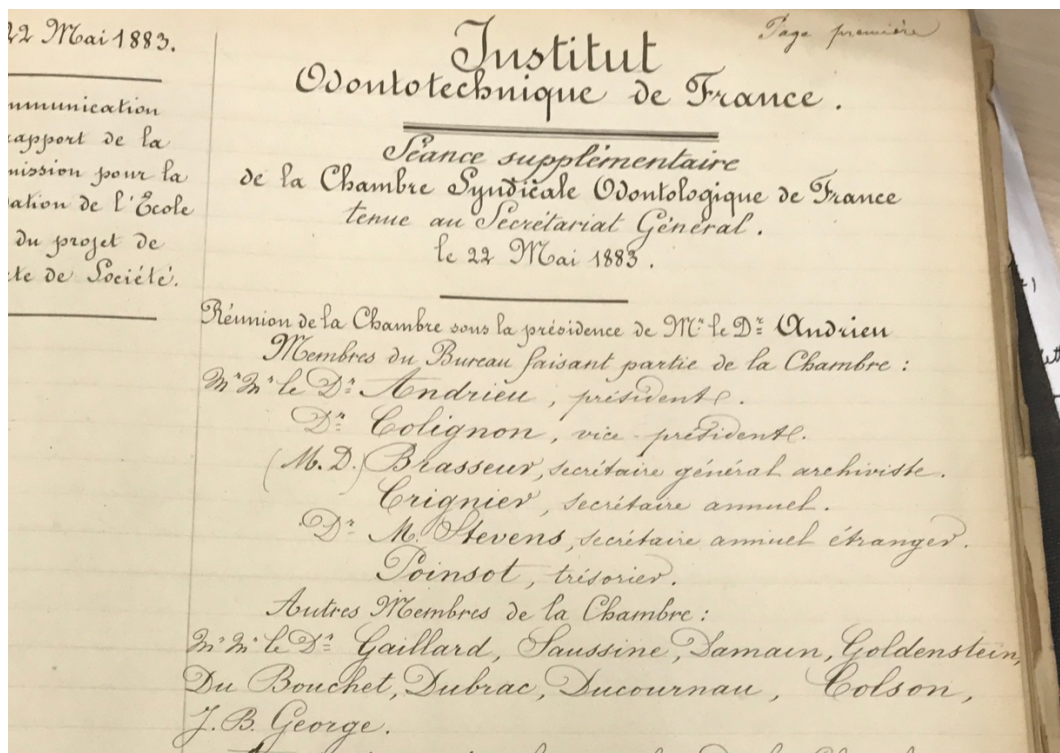 Page première
22 Mai 1883.
mmunication
rapport de la
mission pour la
ation de l'École
du projet de
te de Société.
Institut
Odontotechnique de France.
Séance supplémentaire
de la Chambre Syndicale Odontologique de France
tenue au Secrétariat Général.
le 22 Mai 1883.
Réunion de la Chambre sous la présidence de Mr le Dr Andrieu
Membres du Bureau faisant partie de la Chambre :
Mr Mr le Dr Andrieu, président.
Dr Colignon, vice-président.
(M. D.) Brasseur, secrétaire général archiviste.
Crignier, secrétaire annuel.
Dr M. Stevens, secrétaire annuel étranger.
Poinsot, trésorier.
Autres Membres de la Chambre :
Mr Mr le Dr Gaillard, Saussine, Damain, Goldenstein,
Du Bouchet, Dubrac, Ducournau, Colson,
J. B. George.